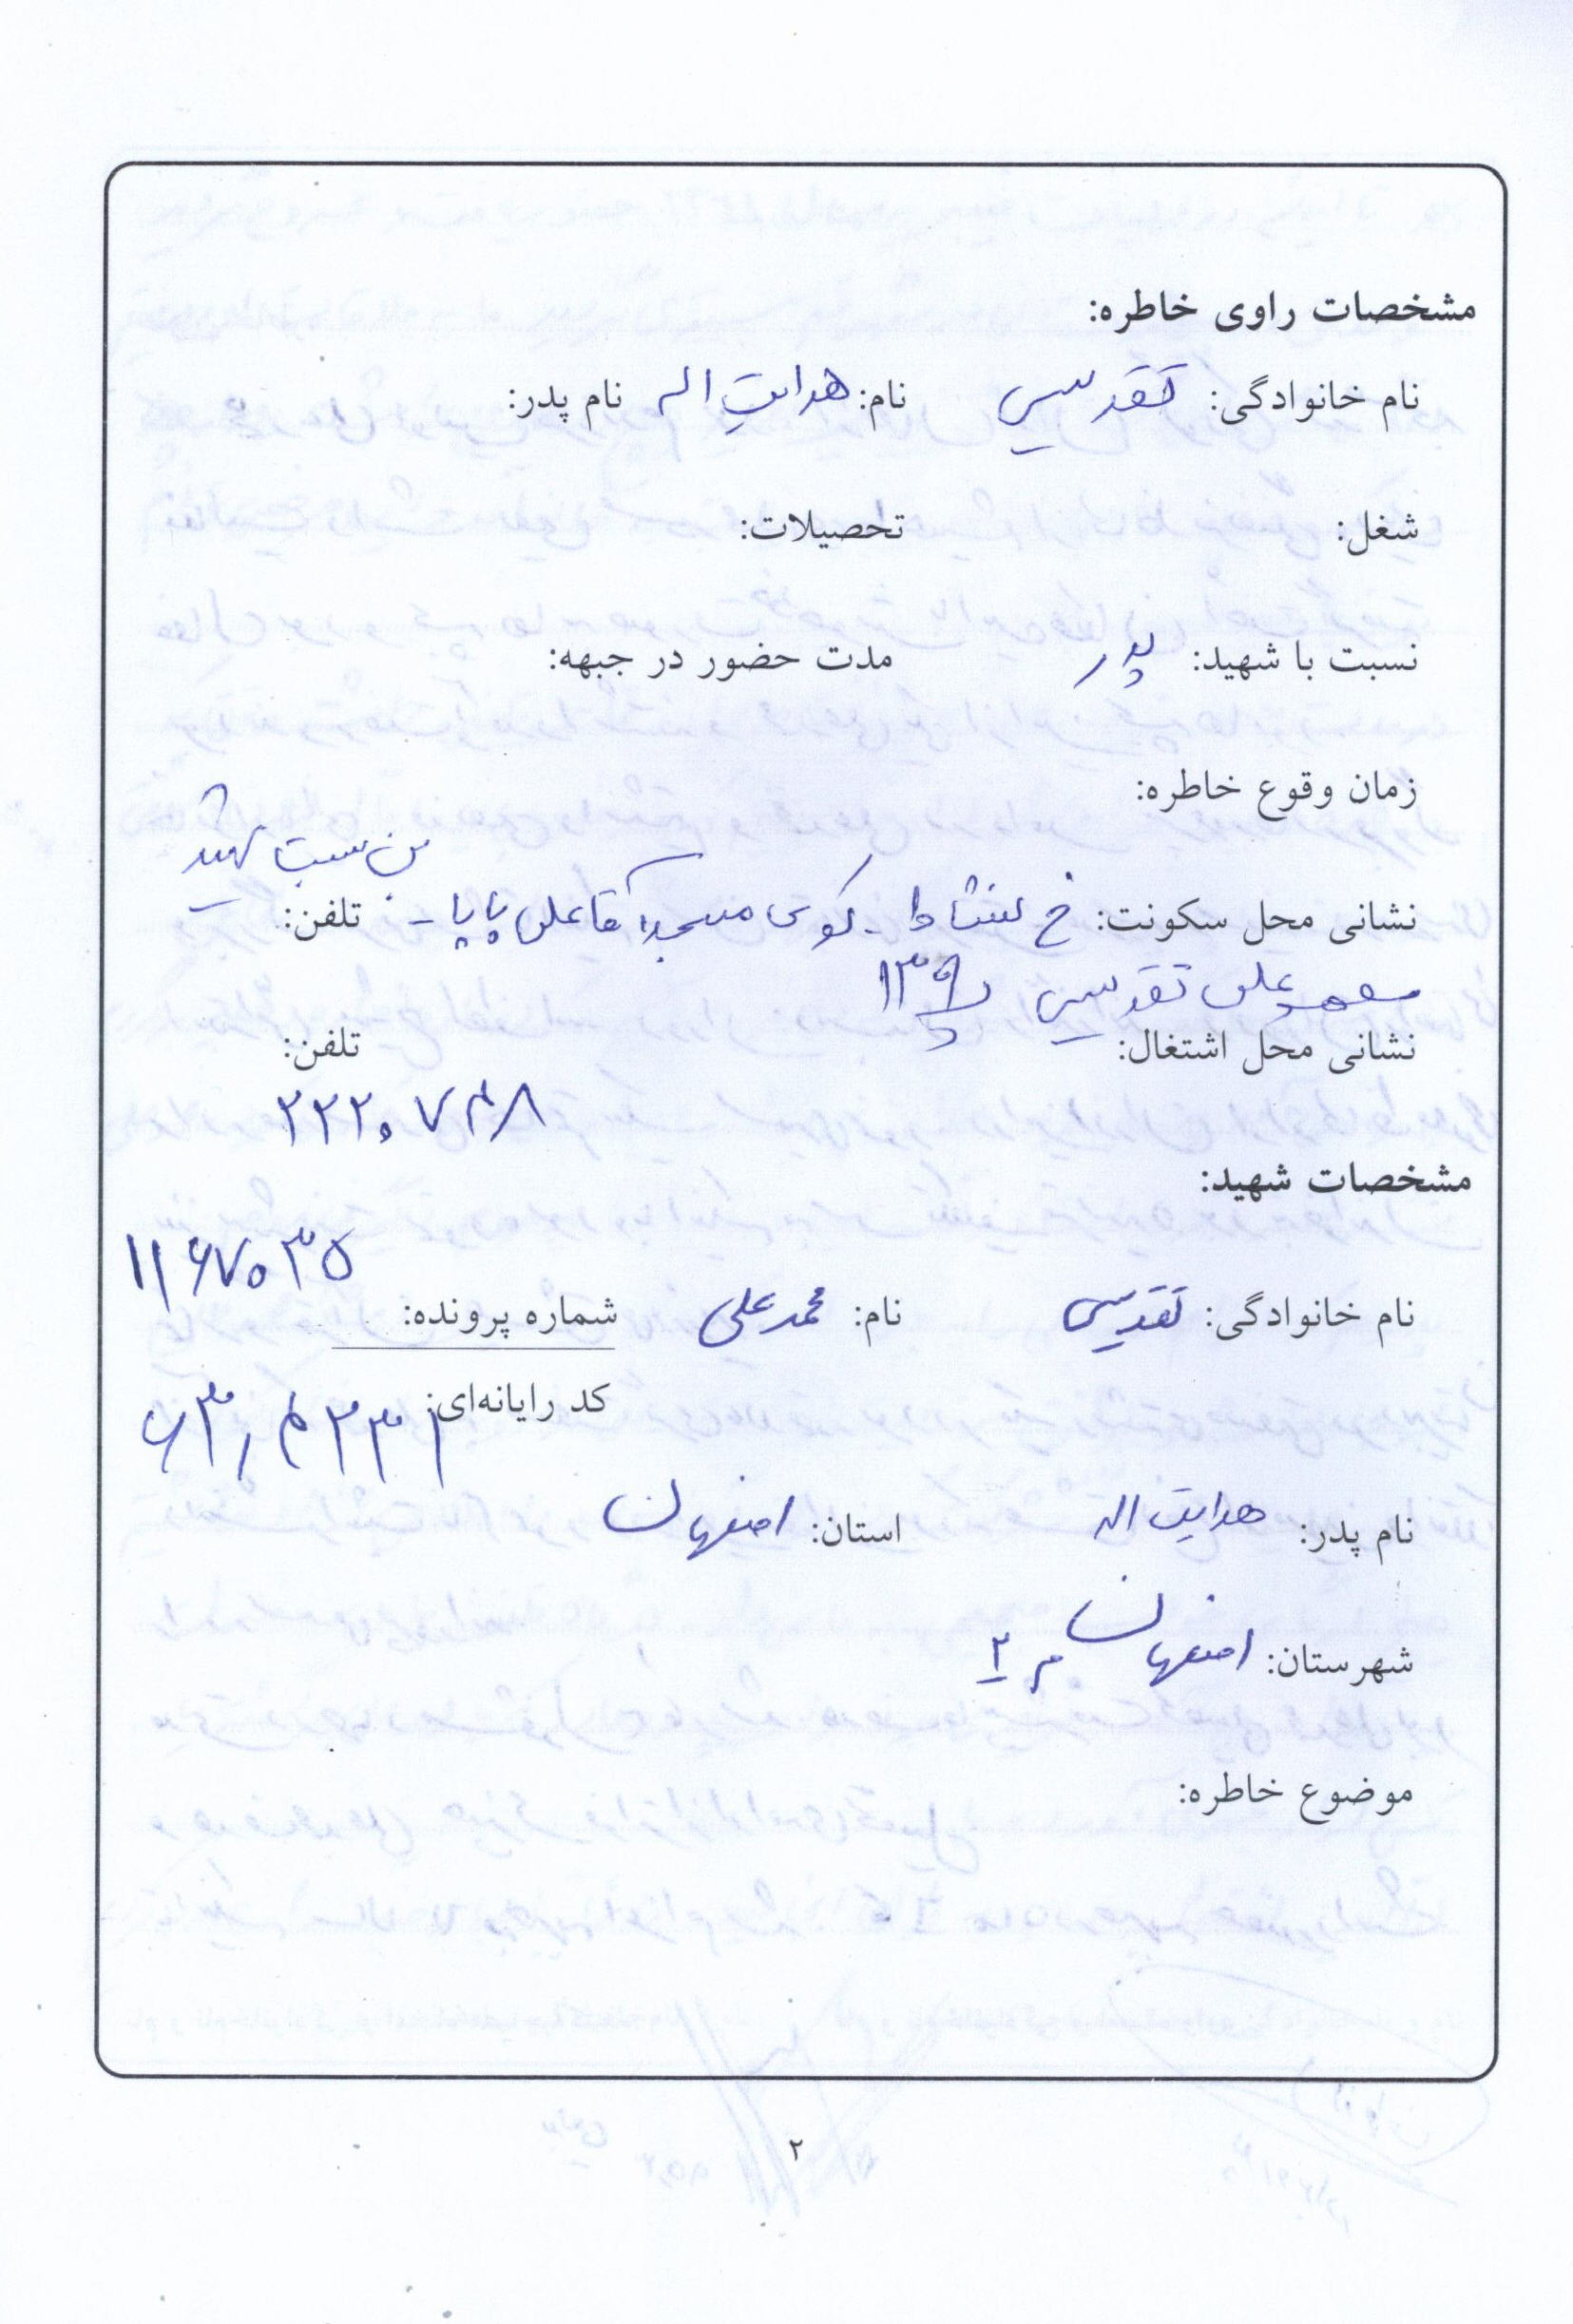 مشخصات راوی خاطره:
نام خانوادگی: تقدسی نام: هدایت اله نام پدر:
شغل: تحصیلات:
نسبت با شهید: پدر مدت حضور در جبهه:
زمان وقوع خاطره:
بن بست شهید
نشانی محل سکونت: خ کوی مسجد آقا علی بابا - تلفن:
علی تقدسی
نشانی محل اشتغال: تلفن:
۲۲۲۰۷۴۸
مشخصات شهید:
۱۱۶۷۰۳۵
نام خانوادگی: تقدسی نام: محمد علی شماره پرونده:
کد رایانه‌ای:
نام پدر: هدایت اله استان: اصفهان
شهرستان: اصفهان م ۲
موضوع خاطره:
۲